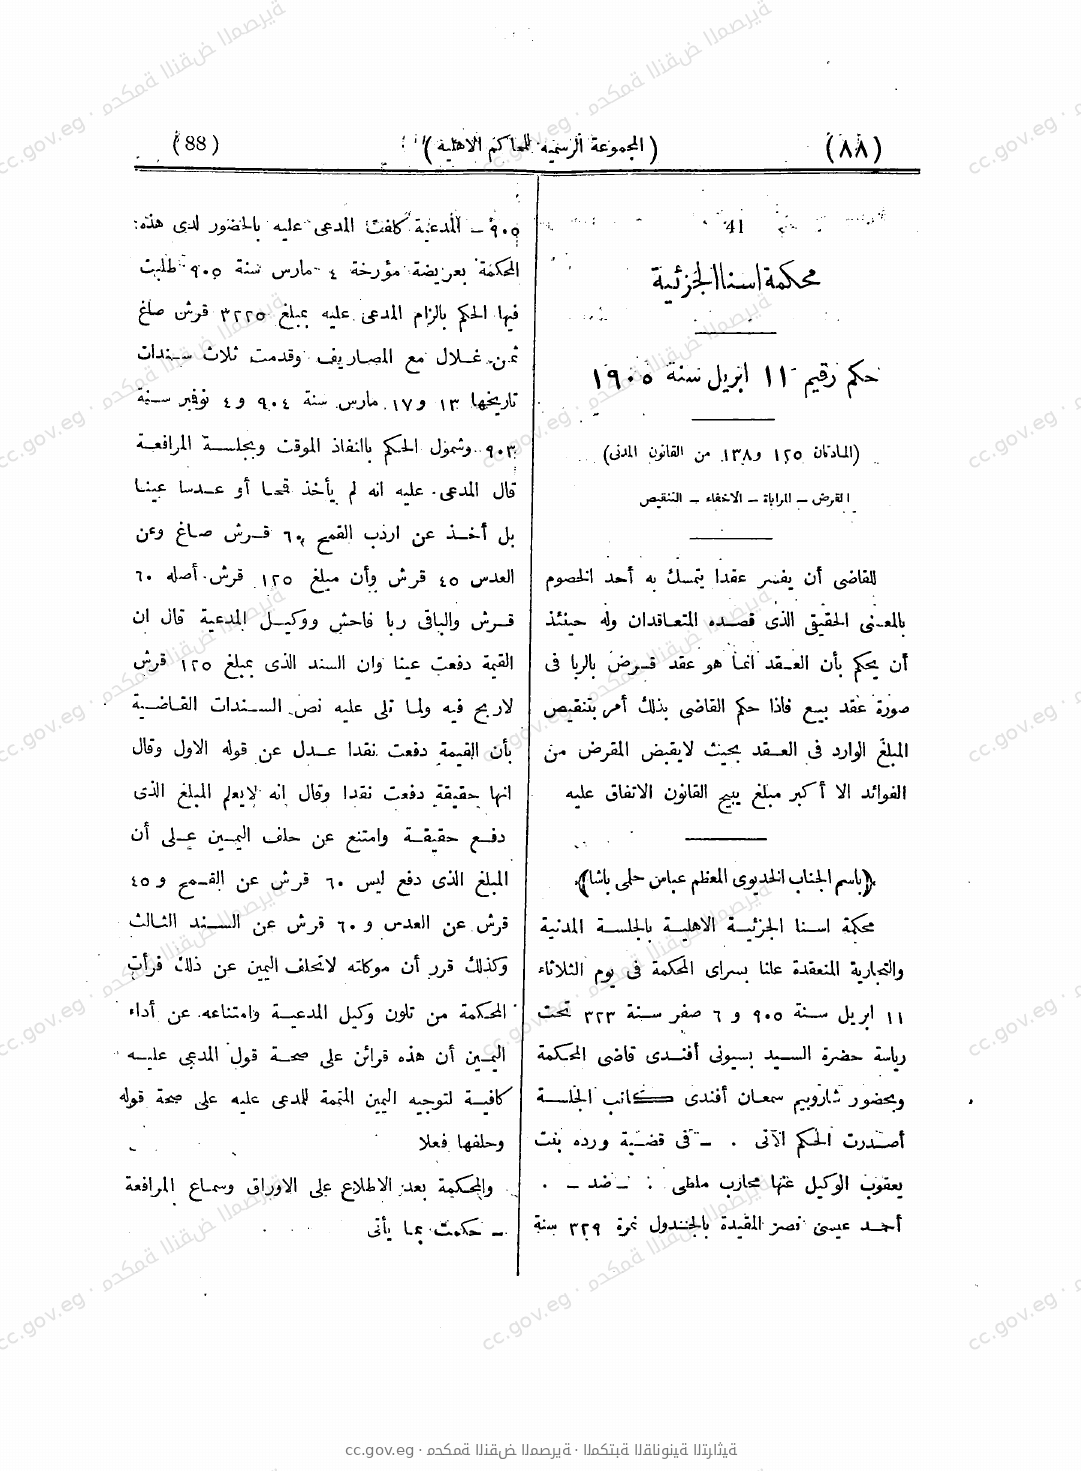 (٨٨) (المجموعة الرسمية للمحاكم الاهلية) (88)
41
محكمة اسنا الجزئية
حكم رقيم ١١ ابريل سنة ١٩٠٥
(المادتان ١٢٥ و١٣٨ من القانون المدنى)
القرض – المراباة – الاخفاء – التنقيص
للقاضى أن يفسر عقدا يتمسك به أحد الخصوم
بالمعنى الحقيقى الذى قصده المتعاقدان وله حينئذ
أن يحكم بأن العقد انما هو عقد قرض بالربا فى
صورة عقد بيع فاذا حكم القاضى بذلك أمر بتنقيص
المبلغ الوارد فى العقد بحيث لايقبض المقرض من
الفوائد الا أكبر مبلغ يبيح القانون الاتفاق عليه
(باسم الجناب الخديوى المعظم عباس حلمى باشا)
محكمة اسنا الجزئية الاهلية بالجلسة المدنية
والتجارية المنعقدة علنا بسراى المحكمة فى يوم الثلاثاء
١١ ابريل سنة ٩٠٥ و ٦ صفر سنة ٣٢٣ تحت
رياسة حضرة السيد بسيونى أفندى قاضى المحكمة
وبحضور شاروبيم سمعان أفندى كاتب الجلسة
أصدرت الحكم الآتى – فى قضية ورده بنت
يعقوب الوكيل عنها محارب ملطى – ضد –
أحمد عيسى نصر المقيدة بالجندول نمرة ٣٢٩ سنة
٩٠٥ – المدعية كلفت المدعى عليه بالحضور لدى هذه
المحكمة بعريضة مؤرخة ٤ مارس سنة ٩٠٥ طلبت
فيها الحكم بالزام المدعى عليه بمبلغ ٣٢٢٥ قرش صاغ
ثمن غلال مع المصاريف وقدمت ثلاث سندات
تاريخها ١٣ و١٧ مارس سنة ٩٠٤ و٤ نوفمبر سنة
٩٠٣ وشمول الحكم بالنفاذ الموقت وبجلسة المرافعة
قال المدعى عليه انه لم يأخذ قمحا أو عدسا عينا
بل أخذ عن اردب القمح ٦٠ قرش صاغ وعن
العدس ٤٥ قرش وأن مبلغ ١٢٥ قرش أصله ٦٠
قرش والباقى ربا فاحش ووكيل المدعية قال ان
القيمة دفعت عينا وان السند الذى بمبلغ ١٢٥ قرش
لاربح فيه ولما تلى عليه نص السندات القاضية
بأن القيمة دفعت نقدا عدل عن قوله الاول وقال
انها حقيقة دفعت نقدا وقال انه لايعلم المبلغ الذى
دفع حقيقة وامتنع عن حلف اليمين على أن
المبلغ الذى دفع ليس ٦٠ قرش عن القمح و ٤٥
قرش عن العدس و ٦٠ قرش عن السند الثالث
وكذلك قرر أن موكلته لاتحلف اليمين عن ذلك فرأت
المحكمة من تلون وكيل المدعية وامتناعه عن أداء
اليمين أن هذه قرائن على صحة قول المدعى عليه
كافية لتوجيه اليمين المتممة للمدعى عليه على صحة قوله
وحلفها فعلا
والمحكمة بعد الاطلاع على الاوراق وسماع المرافعة
– حكمت بما يأتى
cc.gov.eg · محكمة النقض المصرية · المكتبة القانونية التراثية